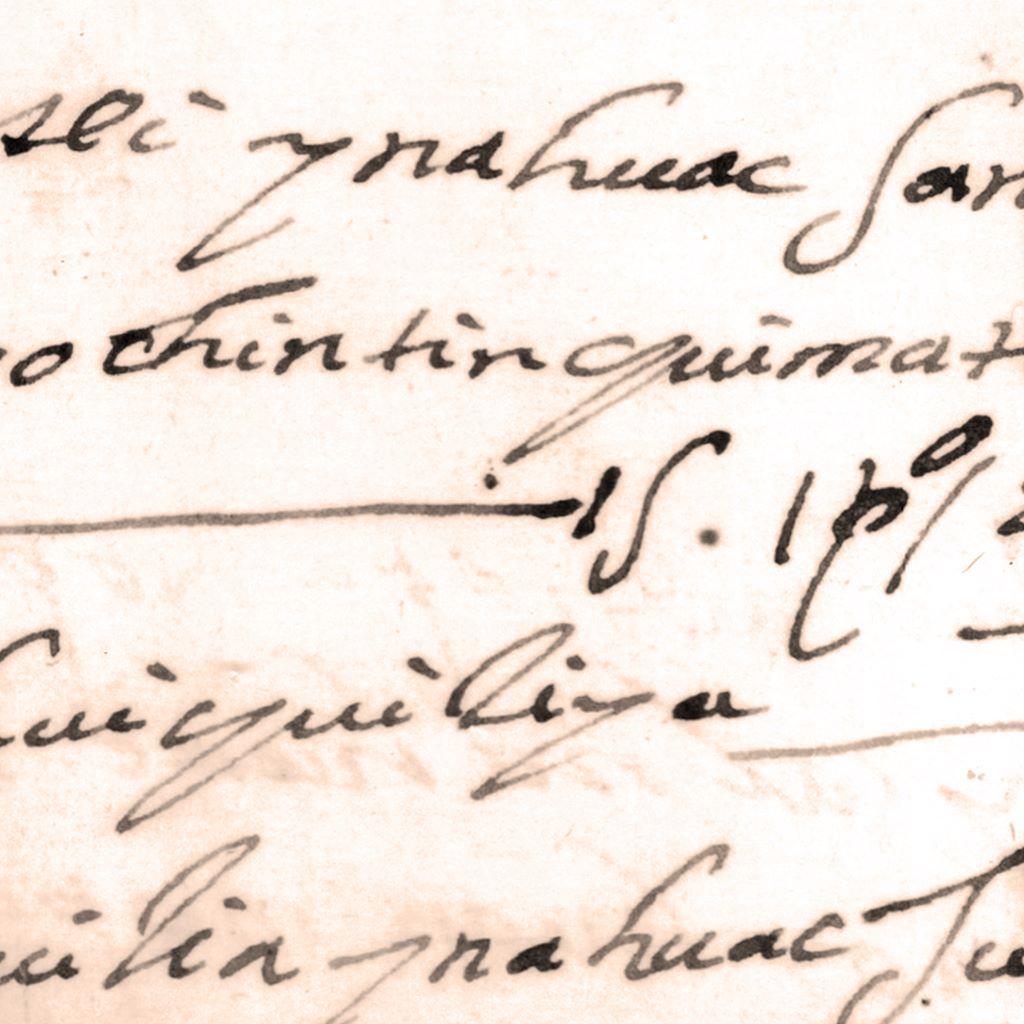 tli ynahuac San
ochintin quimat
15. 1 po/ 2
huiquiliya
uilia ynahuac Ju